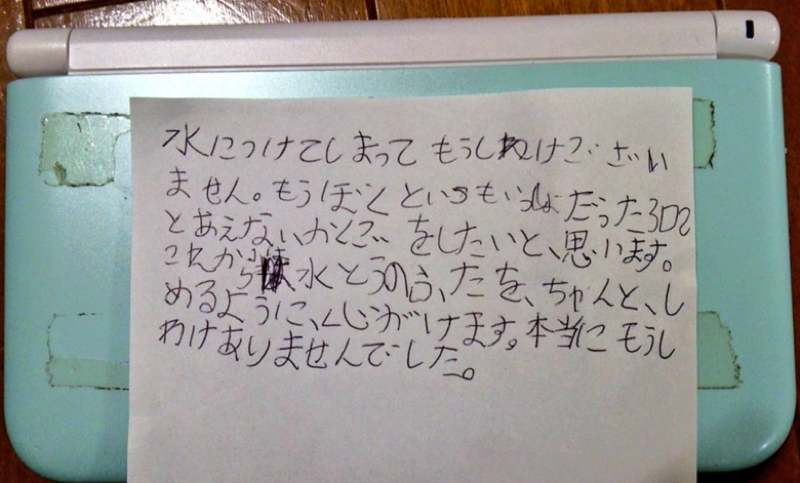 水につけてしまって もうしわけございい
ません。もうぼくといつもいっしょだった3DS
とあえないかくごをしたいと、思います。
これからは水とうのふたを、ちゃんと、し
めるように、心がけます。本当にもうし
わけありませんでした。